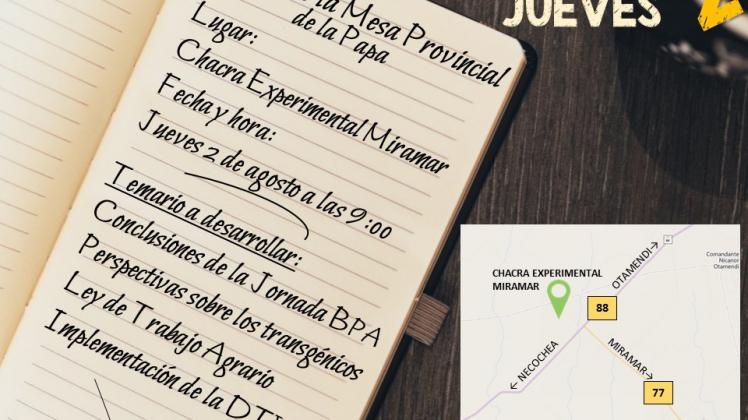 la Mesa Provincial
de la Papa
Lugar:
Chacra Experimental Miramar
Fecha y hora:
Jueves 2 de agosto a las 9:00
Temario a desarrollar:
Conclusiones de la Jornada BPA
Perspectivas sobre los transgénicos
Ley de Trabajo Agrario
Implementación de la
JUEVES
2
CHACRA EXPERIMENTAL
MIRAMAR
OTAMENDI
88
NECOCHEA
MIRAMAR
77
Comandante
Nicanor
Otamendi